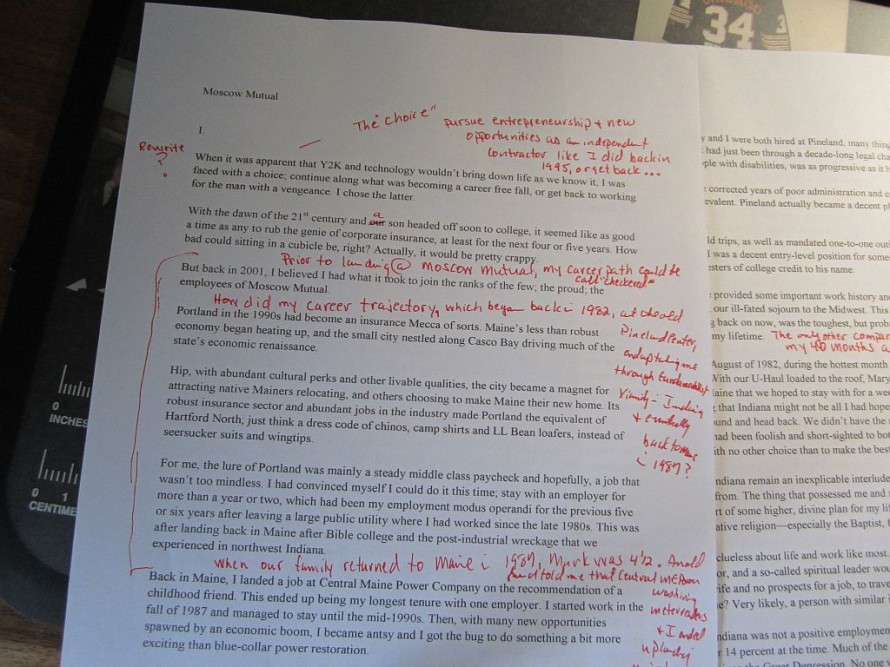 34
3
Moscow Mutual
I.
The "choice"
pursue entrepreneurship + new
opportunities as an independent
contractor like I did back in
1995, or get back...
Rewrite
?
When it was apparent that Y2K and technology wouldn't bring down life as we know it, I was
faced with a choice; continue along what was becoming a career free fall, or get back to working
for the man with a vengeance. I chose the latter.
With the dawn of the 21st century and our a son headed off soon to college, it seemed like as good
a time as any to rub the genie of corporate insurance, at least for the next four or five years. How
bad could sitting in a cubicle be, right? Actually, it would be pretty crappy.
Prior to landing @ Moscow Mutual, my career path could be
call "checkered"
But back in 2001, I believed I had what it took to join the ranks of the few; the proud; the
employees of Moscow Mutual.
How did my career trajectory, which began back in 1982, at
Pineland Center,
through fundamentalist
+ eventually
back to
1987?
Portland in the 1990s had become an insurance Mecca of sorts. Maine's less than robust
economy began heating up, and the small city nestled along Casco Bay driving much of the
state's economic renaissance.
Hip, with abundant cultural perks and other livable qualities, the city became a magnet for
attracting native Mainers relocating, and others choosing to make Maine their new home. Its
robust insurance sector and abundant jobs in the industry made Portland the equivalent of
Hartford North; just think a dress code of chinos, camp shirts and LL Bean loafers, instead of
seersucker suits and wingtips.
For me, the lure of Portland was mainly a steady middle class paycheck and hopefully, a job that
wasn't too mindless. I had convinced myself I could do it this time; stay with an employer for
more than a year or two, which had been my employment modus operandi for the previous five
or six years after leaving a large public utility where I had worked since the late 1980s. This was
after landing back in Maine after Bible college and the post-industrial wreckage that we
experienced in northwest Indiana.
When our family returned to Maine in 1987, Mark was 4½. An old
friend told me that Central ME Power
meter readers
+ I
Back in Maine, I landed a job at Central Maine Power Company on the recommendation of a
childhood friend. This ended up being my longest tenure with one employer. I started work in the
fall of 1987 and managed to stay until the mid-1990s. Then, with many new opportunities
spawned by an economic boom, I became antsy and I got the bug to do something a bit more
exciting than blue-collar power restoration.
y and I were both hired at Pineland, many thing
had just been through a decade-long legal cha
ple with disabilities, was as progressive as it
corrected years of poor administration and
evalent. Pineland actually became a decent pl
ld trips, as well as mandated one-to-one out
I was a decent entry-level position for some
esters of college credit to his name.
provided some important work history an
our ill-fated sojourn to the Midwest. This
g back on now, was the toughest, but prob
my lifetime. The only other compar
my 40 months a
August of 1982, during the hottest month
With our U-Haul loaded to the roof, Mary
aine that we hoped to stay with for a we
that Indiana might not be all I had hope
und and head back. We didn't have the
had been foolish and short-sighted to bo
ith no other choice than to make the best
ndiana remain an inexplicable interlude
from. The thing that possessed me and
rt of some higher, divine plan for my li
ative religion—especially the Baptist, f
clueless about life and work like most
or, and a so-called spiritual leader wou
ife and no prospects for a job, to trave
e? Very likely, a person with similar i
ndiana was not a positive employmen
r 14 percent at the time. Much of the
Great Depression. No one
0
INCHES
0 1
CENTIME